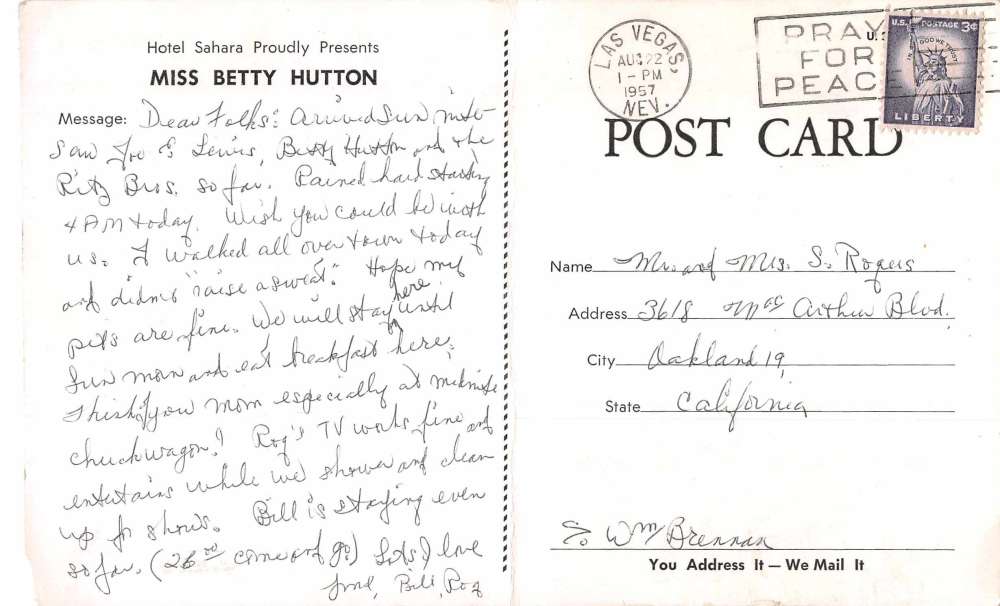 Hotel Sahara Proudly Presents
MISS BETTY HUTTON
Message: Dear Folks: Arrived Sun. nite
Saw Joe E Lewis, Betty Hutton and the
Ritz Bros. so far. Rained hard starting
4 AM today. Wish you could be with
us. I walked all over town today
and didn't "raise a sweat." Hope my
pets are fine. We will stay here until
Sun morn and eat breakfast here.
Think of you Mom especially at midnite
chuckwagon! Rog's TV works fine and
entertains while we shower and clean
up for shows. Bill is staying even
so far. (26 00 come and go) Lots of love
Bill, Rog
LAS VEGAS,
AUG 22
1 - PM
1957
NEV.
PRAY
FOR
PEAC
U.S. POSTAGE 3¢
IN GOD WE TRUST
LIBERTY
POST CARD
Name Mr. and Mrs. S. Rogers
Address 3618 Mac Arthur Blvd.
City Oakland 19,
State California
c/o Wm Brennan
You Address It — We Mail It